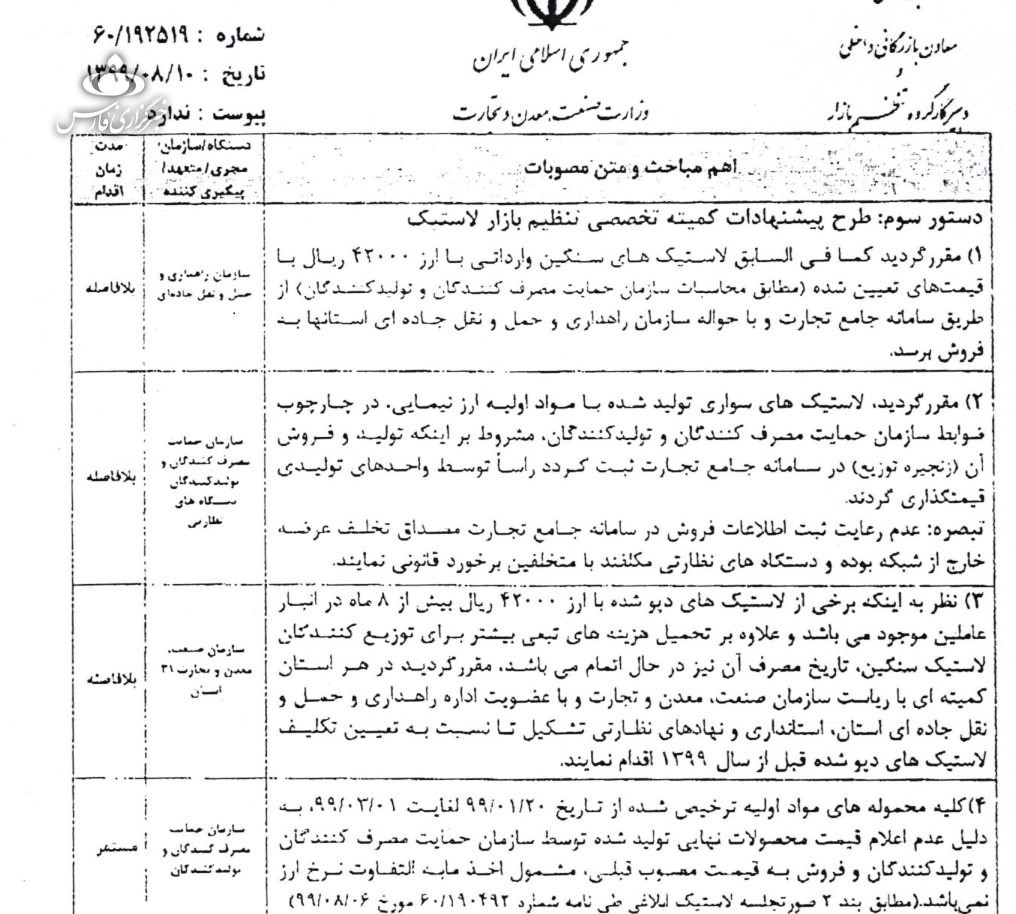 شماره : ۶۰/۱۹۲۵۱۹
تاریخ : ۱۳۹۹/۰۸/۱۰
پیوست : ندارد
خبرگزاری فارس
جمهوری اسلامی ایران
وزارت صنعت، معدن و تجارت
معاون بازرگانی داخلی
و
دبیر کارگروه تنظیم بازار
اهم مباحث و متن مصوبات
دستگاه/سازمان
مجری/متعهد/
پیگیری کننده
مدت
زمان
اقدام
دستور سوم: طرح پیشنهادات کمیته تخصصی تنظیم بازار لاستیک
۱) مقررگردید کما فی السابق لاستیک های سنگین وارداتی با ارز ۴۲۰۰۰ ریال با
قیمت‌های تعیین شده (مطابق محاسبات سازمان حمایت مصرف کنندگان و تولیدکنندگان) از
طریق سامانه جامع تجارت و با حواله سازمان راهداری و حمل و نقل جاده ای استانها به
فروش برسد.
سازمان راهداری و
حمل و نقل جاده‌ای
بلافاصله
۲) مقررگردید، لاستیک های سواری تولید شده با مواد اولیه ارز نیمایی، در چارچوب
ضوابط سازمان حمایت مصرف کنندگان و تولیدکنندگان، مشروط بر اینکه تولید و فروش
آن (زنجیره توزیع) در سامانه جامع تجارت ثبت گردد راساً توسط واحدهای تولیدی
قیمتگذاری گردند.
تبصره: عدم رعایت ثبت اطلاعات فروش در سامانه جامع تجارت مصداق تخلف عرضه
خارج از شبکه بوده و دستگاه های نظارتی مکلفند با متخلفین برخورد قانونی نمایند.
سازمان حمایت
مصرف کنندگان و
تولیدکنندگان
دستگاه های
نظارتی
بلافاصله
۳) نظر به اینکه برخی از لاستیک های دپو شده با ارز ۴۲۰۰۰ ریال بیش از ۸ ماه در انبار
عاملین موجود می باشد و علاوه بر تحمیل هزینه های تبعی بیشتر برای توزیع کنندگان
لاستیک سنگین، تاریخ مصرف آن نیز در حال اتمام می باشد، مقررگردید در هر استان
کمیته ای با ریاست سازمان صنعت، معدن و تجارت و با عضویت اداره راهداری و حمل و
نقل جاده ای استان، استانداری و نهادهای نظارتی تشکیل تا نسبت به تعیین تکلیف
لاستیک های دپو شده قبل از سال ۱۳۹۹ اقدام نمایند.
سازمان صنعت،
معدن و تجارت ۳۱
استان
بلافاصله
۴)کلیه محموله های مواد اولیه ترخیص شده از تاریخ ۹۹/۰۱/۲۰ لغایت ۹۹/۰۳/۰۱، به
دلیل عدم اعلام قیمت محصولات نهایی تولید شده توسط سازمان حمایت مصرف کنندگان
و تولیدکنندگان و فروش به قیمت مصوب قبلی، مشمول اخذ مابه التفاوت نرخ ارز
نمی‌باشد.(مطابق بند ۲ صورتجلسه لاستیک ابلاغی طی نامه شماره ۶۰/۱۹۰۴۹۲ مورخ ۹۹/۰۸/۰۶)
سازمان حمایت
مصرف کنندگان و
تولیدکنندگان
مستمر